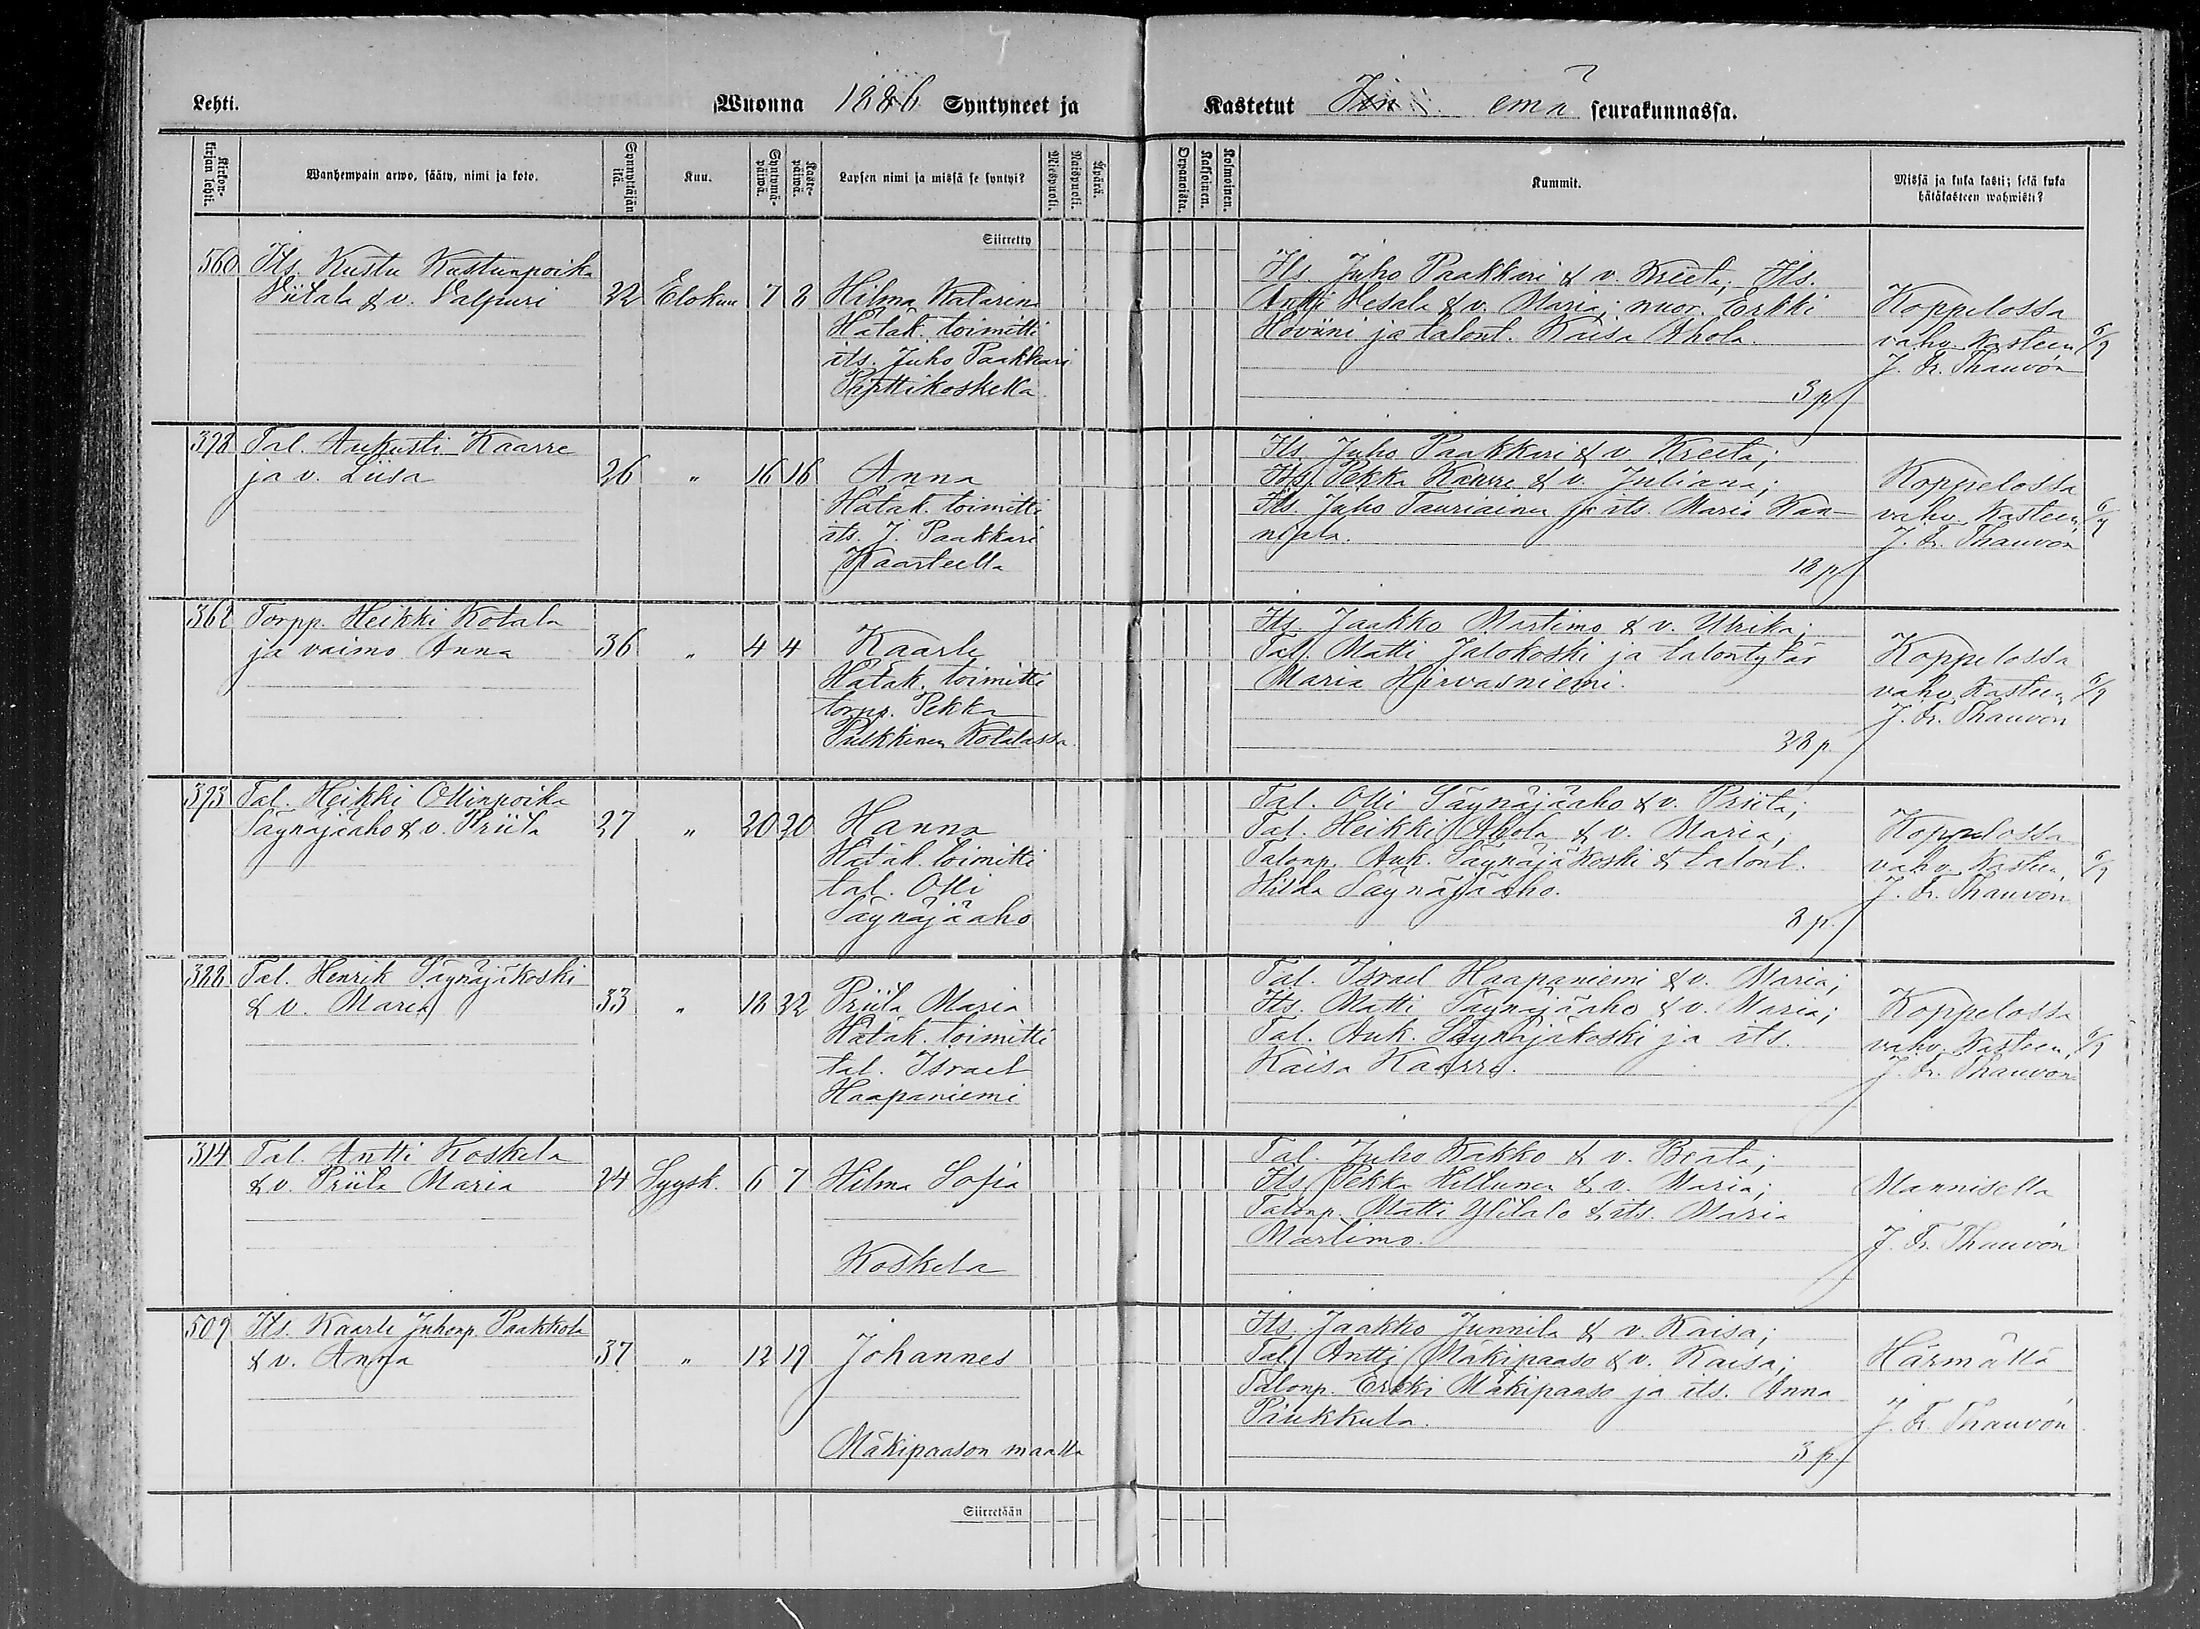 Lehti. Wuonna 1886 Syntyneet ja Kastetut Iin emä seurakunnassa.
Kirkonkirjan lehti. Wanhempain arwo, sääty, nimi ja koto. Synnyttäjän ikä. Kuu. Syntymäpäiwä. Kastepäiwä. Lapsen nimi ja missä se syntyi? Miespuoli. Naispuoli. Äpärä. Orpanoista. Kaksoinen. Kolmoinen. Kummit. Missä ja kuka kasti; sekä kuka hätäkasteen wahwisti?
Siirretty
560 Its. Kustu Kustunpoika
Viitala & v. Valpuri 22 Elokuu 7 8 Hilma Katarina
Hätäk. toimitti
its. Juho Paakkari
Pirttikoskella
Its. Juho Paakkari & v. Kreeta; Its.
Antti Vesala & v. Maria; nuor. Erkki
Hoviini ja talont. Kaisa Ahola.
3 p
Koppelossa
vahv. kasteen 6/9
J. Fr. Thauvón
398 Tal. Aukusti Kaarre
ja v. Liisa 26 " 16 16 Anna
Hätäk. toimitti
its. J. Paakkari
Kaarteella
Its. Juho Paakkari & v. Kreeta;
Its. Pekka Kaarre & v. Juliana;
Its. Juho Tauriainen ja its. Maria Kan-
nijala.
18 p
Koppelossa
vahv. kasteen 6/9
J. Fr. Thauvón
362 Torpp. Heikki Kotala
ja vaimo Anna 36 " 4 4 Kaarle
Hätäk. toimitti
torpp. Pekka
Pulkkinen Kotalassa
Its. Jaakko Martimo & v. Ulrika;
Tal. Matti Jalokoski ja talontytär
Maria Hirvasniemi.
28 p
Koppelossa
vahv. kasteen 6/9
J. Fr. Thauvón
393 Tal. Heikki Ollinpoika
Säynäjäaho & v. Priita 27 " 20 20 Hanna
Hätäk. toimitti
tal. Olli
Säynäjäaho
Tal. Olli Säynäjäaho & v. Priita;
Tal. Heikki Ahola & v. Maria;
Talonp. Auk. Säynäjäkoski & talont.
Hilda Säynäjäaho.
8 p.
Koppelossa
vahv. kasteen 6/9
J. Fr. Thauvón
388 Tal. Henrik Säynäjäkoski
& v. Maria 33 " 18 22 Priita Maria
Hätäk. toimitti
tal. Israel
Haapaniemi
Tal. Israel Haapaniemi & v. Maria;
Its. Matti Säynäjäaho & v. Maria;
Tal. Auk. Säynäjäkoski ja its.
Kaisa Kaarre.
Koppelossa
vahv. kasteen 6/9
J. Fr. Thauvón
314 Tal. Antti Koskela
& v. Priita Maria 24 Syysk. 6 7 Hilma Sofia
Koskela
Tal. Juho Kakko & v. Beata;
Its. Pekka Hiltunen & v. Maria;
Talonp. Matti Ylitalo & its. Maria
Martimo.
Mannisella
J. Fr. Thauvón
509 Its. Kaarle Juhonp. Paakkola
& v. Anna 37 " 12 19 Johannes
Mäkipaason maalla
Its. Jaakko Junnila & v. Kaisa;
Tal. Antti Mäkipaaso & v. Kaisa;
Talonp. Erkki Mäkipaaso ja its. Anna
Paukkula.
3 p.
Härmällä
J. Fr. Thauvón
Siirretään